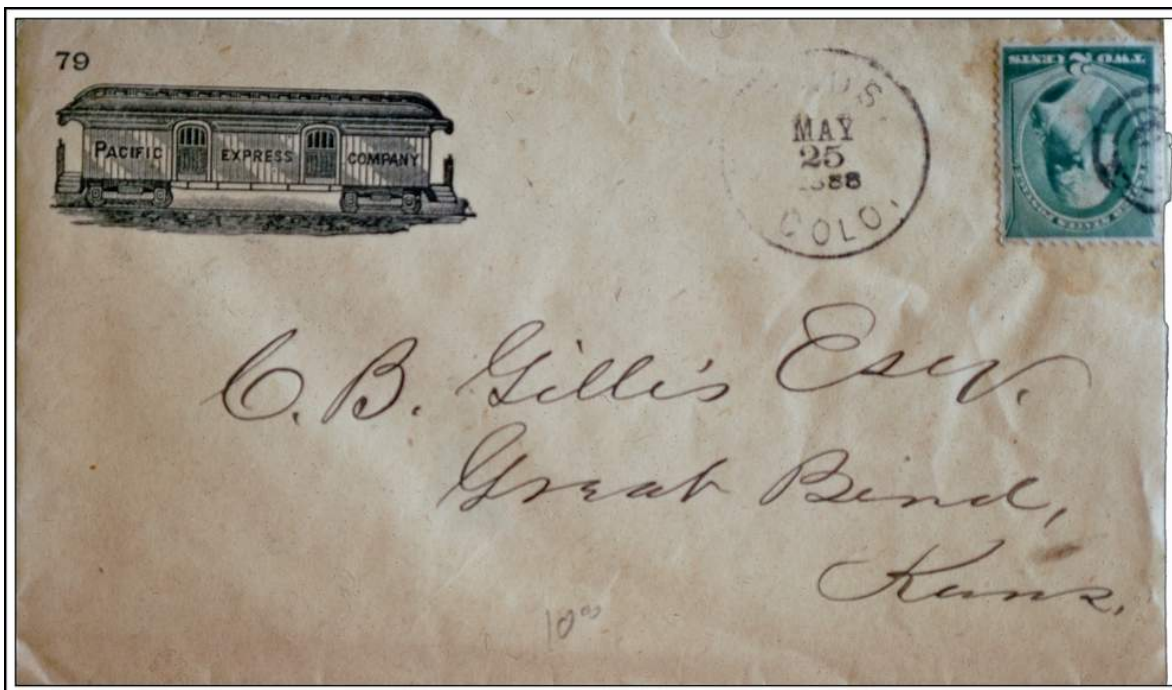 79
PACIFIC EXPRESS COMPANY
MAY
25
1888
COLO.
TWO 2 CENTS
C. B. Gillis Esq.
Great Bend,
Kans.
10⁰⁰